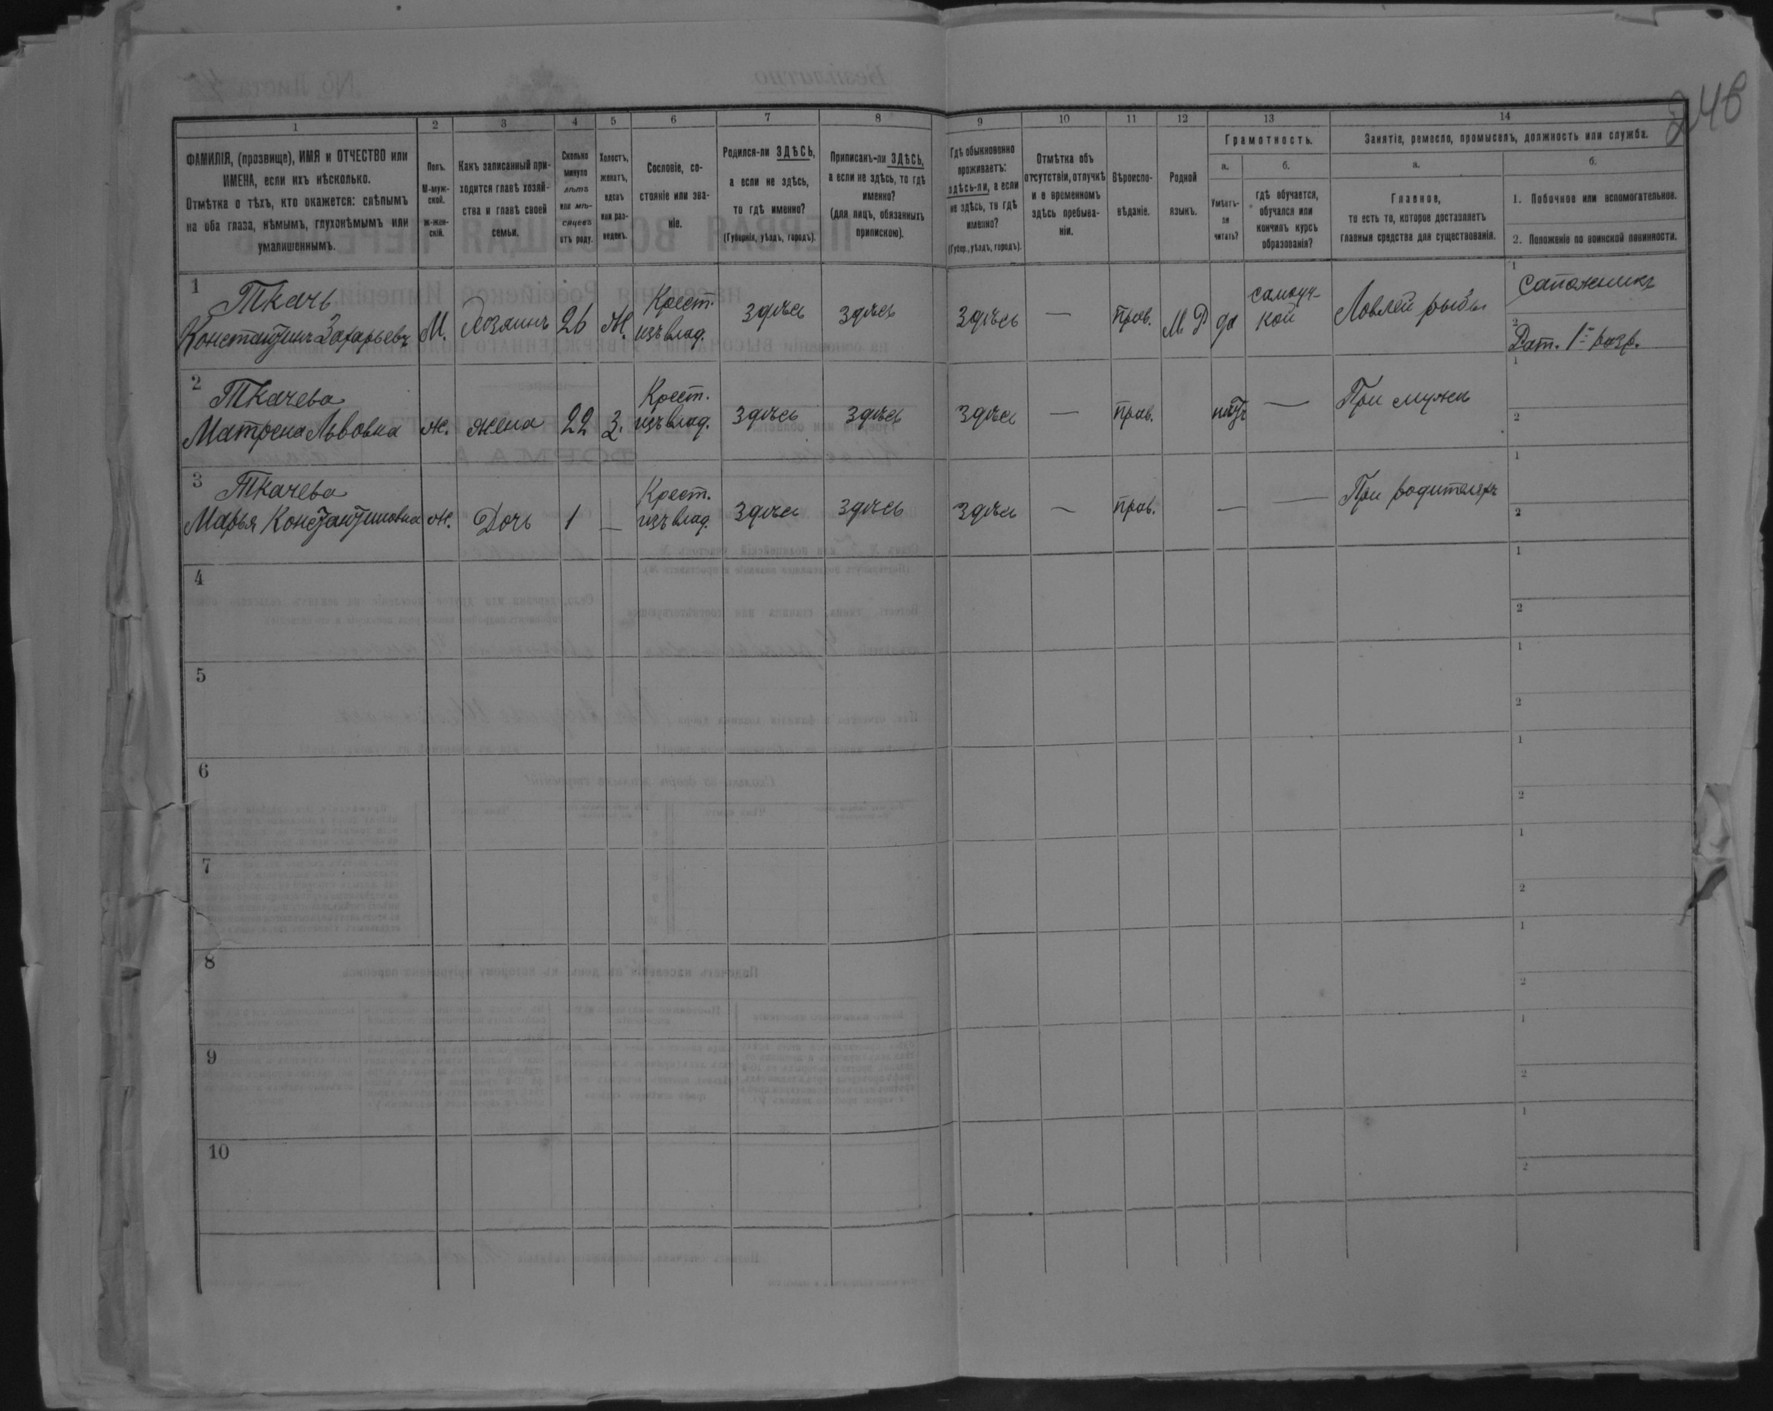 246
1
2
3
4
5
6
7
8
9
10
11
12
13
14
ФАМИЛІЯ, (прозвище), ИМЯ и ОТЧЕСТВО или
ИМЕНА, если ихъ нѣсколько.
Отмѣтка о тѣхъ, кто окажется: слѣпымъ
на оба глаза, нѣмымъ, глухонѣмымъ или
умалишеннымъ.
Полъ.
М-муж-
ской.
Ж-жен-
скій.
Какъ записанный при-
ходится главѣ хозяй-
ства и главѣ своей
семьи.
Сколько
минуло
лѣтъ
или мѣ-
сяцевъ
отъ роду.
Холостъ,
женатъ,
вдовъ
или раз-
веденъ.
Сословіе, со-
стояніе или зва-
ніе.
Родился-ли ЗДѢСЬ,
а если не здѣсь,
то гдѣ именно?
(Губернія, уѣздъ, городъ).
Приписанъ-ли ЗДѢСЬ,
а если не здѣсь, то гдѣ
именно?
(для лицъ, обязанныхъ
припискою).
Гдѣ обыкновенно
проживаетъ:
здѣсь-ли, а если
не здѣсь, то гдѣ
именно?
(Губер., уѣздъ, городъ).
Отмѣтка объ
отсутствіи, отлучкѣ
и о временномъ
здѣсь пребыва-
ніи.
Вѣроиспо-
вѣданіе.
Родной
языкъ.
Грамотность.
а.
Умѣетъ-
ли
читать?
б.
гдѣ обучается,
обучался или
кончилъ курсъ
образованія?
Занятіе, ремесло, промыселъ, должность или служба.
а.
Главное,
то есть то, которое доставляетъ
главныя средства для существованія.
б.
1. Побочное или вспомогательное.
2. Положеніе по воинской повинности.
1
Ткачъ
Константинъ Захарьевъ
М.
Хозяинъ
26
Ж.
Крест.
изъ влад.
здѣсь
здѣсь
здѣсь
—
прав.
М Р
да
самоуч-
кой
Ловлей рыбы
1
сапожникъ
2
Рат. 1 разр.
2
Ткачева
Матрена Львовна
ж.
жена
22
З.
Крест.
изъ влад.
здѣсь
здѣсь
здѣсь
—
прав.
нѣтъ
—
При мужѣ
1
2
3
Ткачева
Марья Константиновна
ж.
Дочь
1
—
Крест.
изъ влад.
здѣсь
здѣсь
здѣсь
—
прав.
—
—
При родителяхъ
1
2
4
1
2
5
1
2
6
1
2
7
1
2
8
1
2
9
1
2
10
1
2